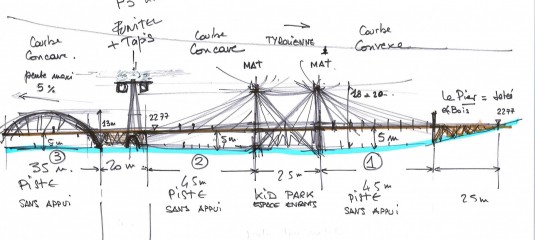 P3
PUNITEL
+ TAPIS
Courbe
Concave
pente maxi
5 %
Courbe
Concave
TYROLIENNE
Courbe
Convexe
MAT
MAT
18 à 20
Le Pier = jetée
2277
13m
2277
5m
5m
5m
③
②
①
35 m.
20 m
45m
25m
45m
25m
PISTE
SANS APPUI
PISTE
SANS APPUI
KID PARK
ESPACE ENFANTS
PISTE
SANS APPUI